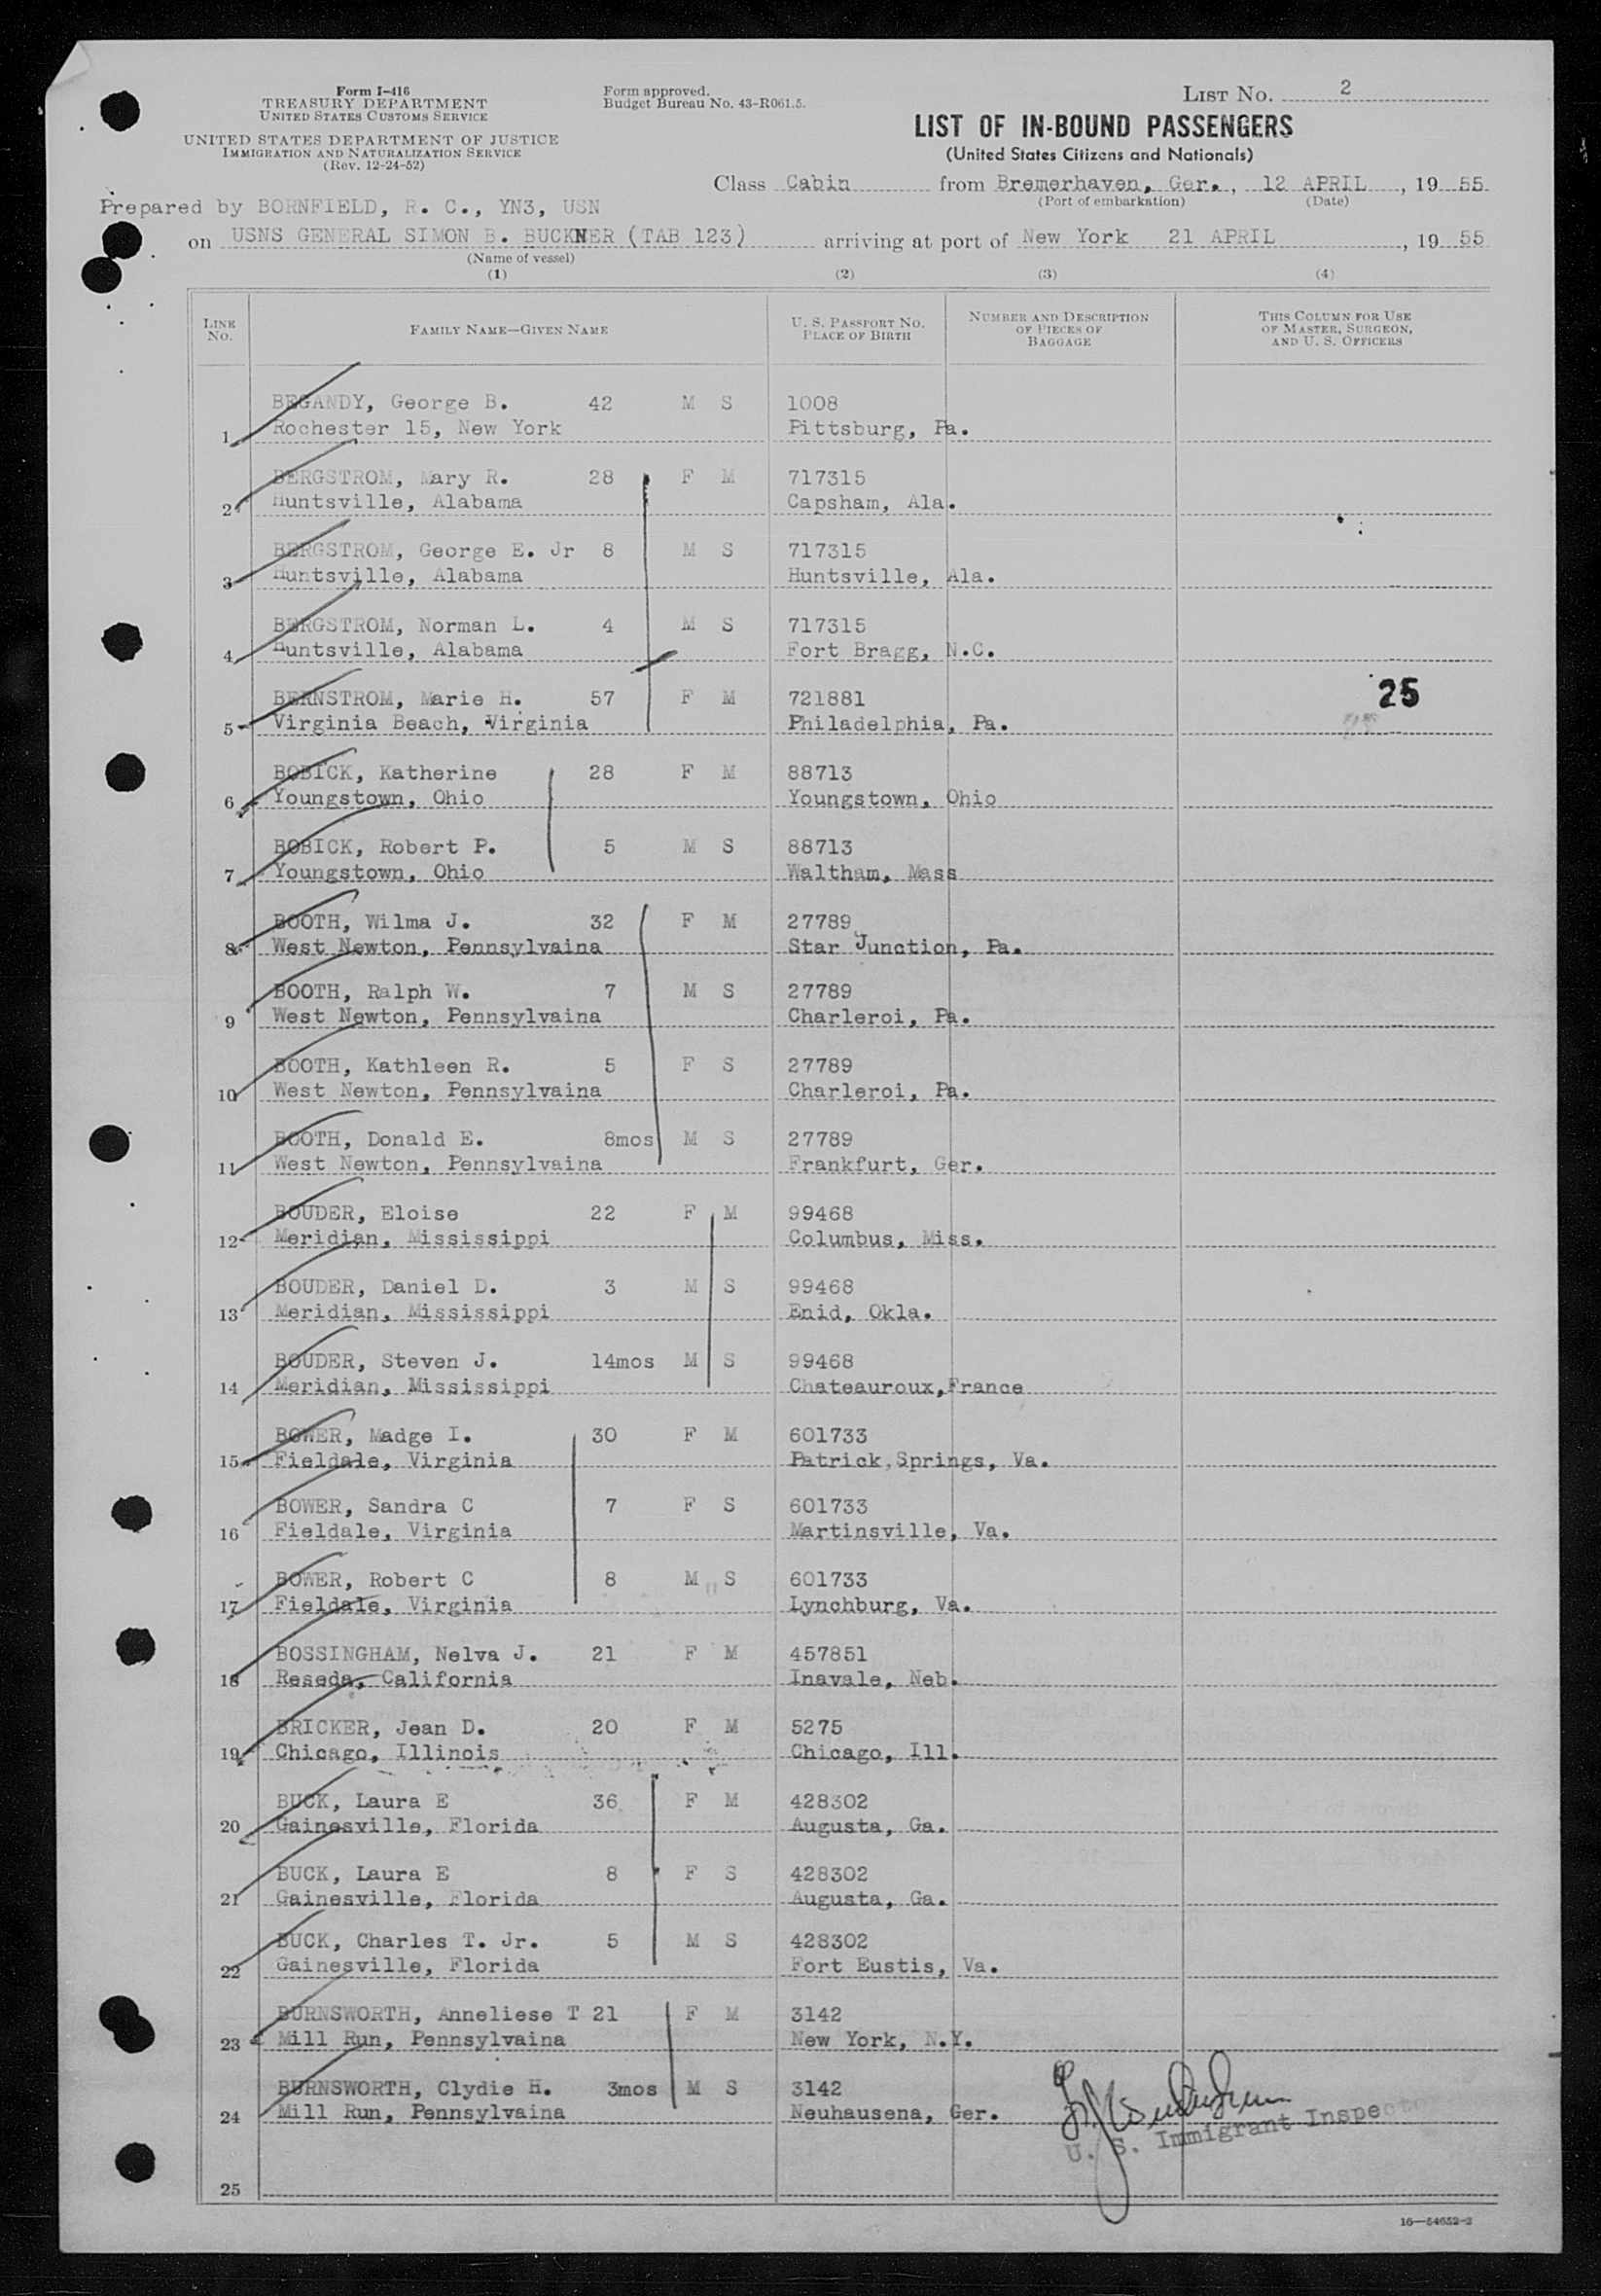 Form I-416
TREASURY DEPARTMENT
UNITED STATES CUSTOMS SERVICE
UNITED STATES DEPARTMENT OF JUSTICE
IMMIGRATION AND NATURALIZATION SERVICE
(Rev. 12-24-52)
Form approved.
Budget Bureau No. 43-R061.5.
LIST NO. 2
LIST OF IN-BOUND PASSENGERS
(United States Citizens and Nationals)
Class Cabin from Bremerhaven, Ger., 12 APRIL, 19 55
(Port of embarkation) (Date)
Prepared by BORNFIELD, R. C., YN3, USN
on USNS GENERAL SIMON B. BUCKNER (TAB 123) arriving at port of New York 21 APRIL, 19 55
(Name of vessel)
(1) (2) (3) (4)
LINE NO. FAMILY NAME—GIVEN NAME U. S. PASSPORT NO. PLACE OF BIRTH NUMBER AND DESCRIPTION OF PIECES OF BAGGAGE THIS COLUMN FOR USE OF MASTER, SURGEON, AND U. S. OFFICERS
BEGANDY, George B. 42 M S 1008
1 Rochester 15, New York Pittsburg, Pa.
BERGSTROM, Mary R. 28 F M 717315
2 Huntsville, Alabama Capsham, Ala.
BERGSTROM, George E. Jr 8 M S 717315
3 Huntsville, Alabama Huntsville, Ala.
BERGSTROM, Norman L. 4 M S 717315
4 Huntsville, Alabama Fort Bragg, N.C.
BERNSTROM, Marie H. 57 F M 721881 25
5 Virginia Beach, Virginia Philadelphia, Pa.
BOBICK, Katherine 28 F M 88713
6 Youngstown, Ohio Youngstown, Ohio
BOBICK, Robert P. 5 M S 88713
7 Youngstown, Ohio Waltham, Mass
BOOTH, Wilma J. 32 F M 27789
8 West Newton, Pennsylvaina Star Junction, Pa.
BOOTH, Ralph W. 7 M S 27789
9 West Newton, Pennsylvaina Charleroi, Pa.
BOOTH, Kathleen R. 5 F S 27789
10 West Newton, Pennsylvaina Charleroi, Pa.
BOOTH, Donald E. 8mos M S 27789
11 West Newton, Pennsylvaina Frankfurt, Ger.
BOUDER, Eloise 22 F M 99468
12 Meridian, Mississippi Columbus, Miss.
BOUDER, Daniel D. 3 M S 99468
13 Meridian, Mississippi Enid, Okla.
BOUDER, Steven J. 14mos M S 99468
14 Meridian, Mississippi Chateauroux, France
BOWER, Madge I. 30 F M 601733
15 Fieldale, Virginia Patrick Springs, Va.
BOWER, Sandra C 7 F S 601733
16 Fieldale, Virginia Martinsville, Va.
BOWER, Robert C 8 M S 601733
17 Fieldale, Virginia Lynchburg, Va.
BOSSINGHAM, Nelva J. 21 F M 457851
18 Reseda, California Inavale, Neb.
BRICKER, Jean D. 20 F M 5275
19 Chicago, Illinois Chicago, Ill.
BUCK, Laura E 36 F M 428302
20 Gainesville, Florida Augusta, Ga.
BUCK, Laura E 8 F S 428302
21 Gainesville, Florida Augusta, Ga.
BUCK, Charles T. Jr. 5 M S 428302
22 Gainesville, Florida Fort Eustis, Va.
BURNSWORTH, Anneliese T 21 F M 3142
23 Mill Run, Pennsylvaina New York, N.Y.
BURNSWORTH, Clydie H. 3mos M S 3142
24 Mill Run, Pennsylvaina Neuhausena, Ger.
U. S. Immigrant Inspector
25
16—54652-2